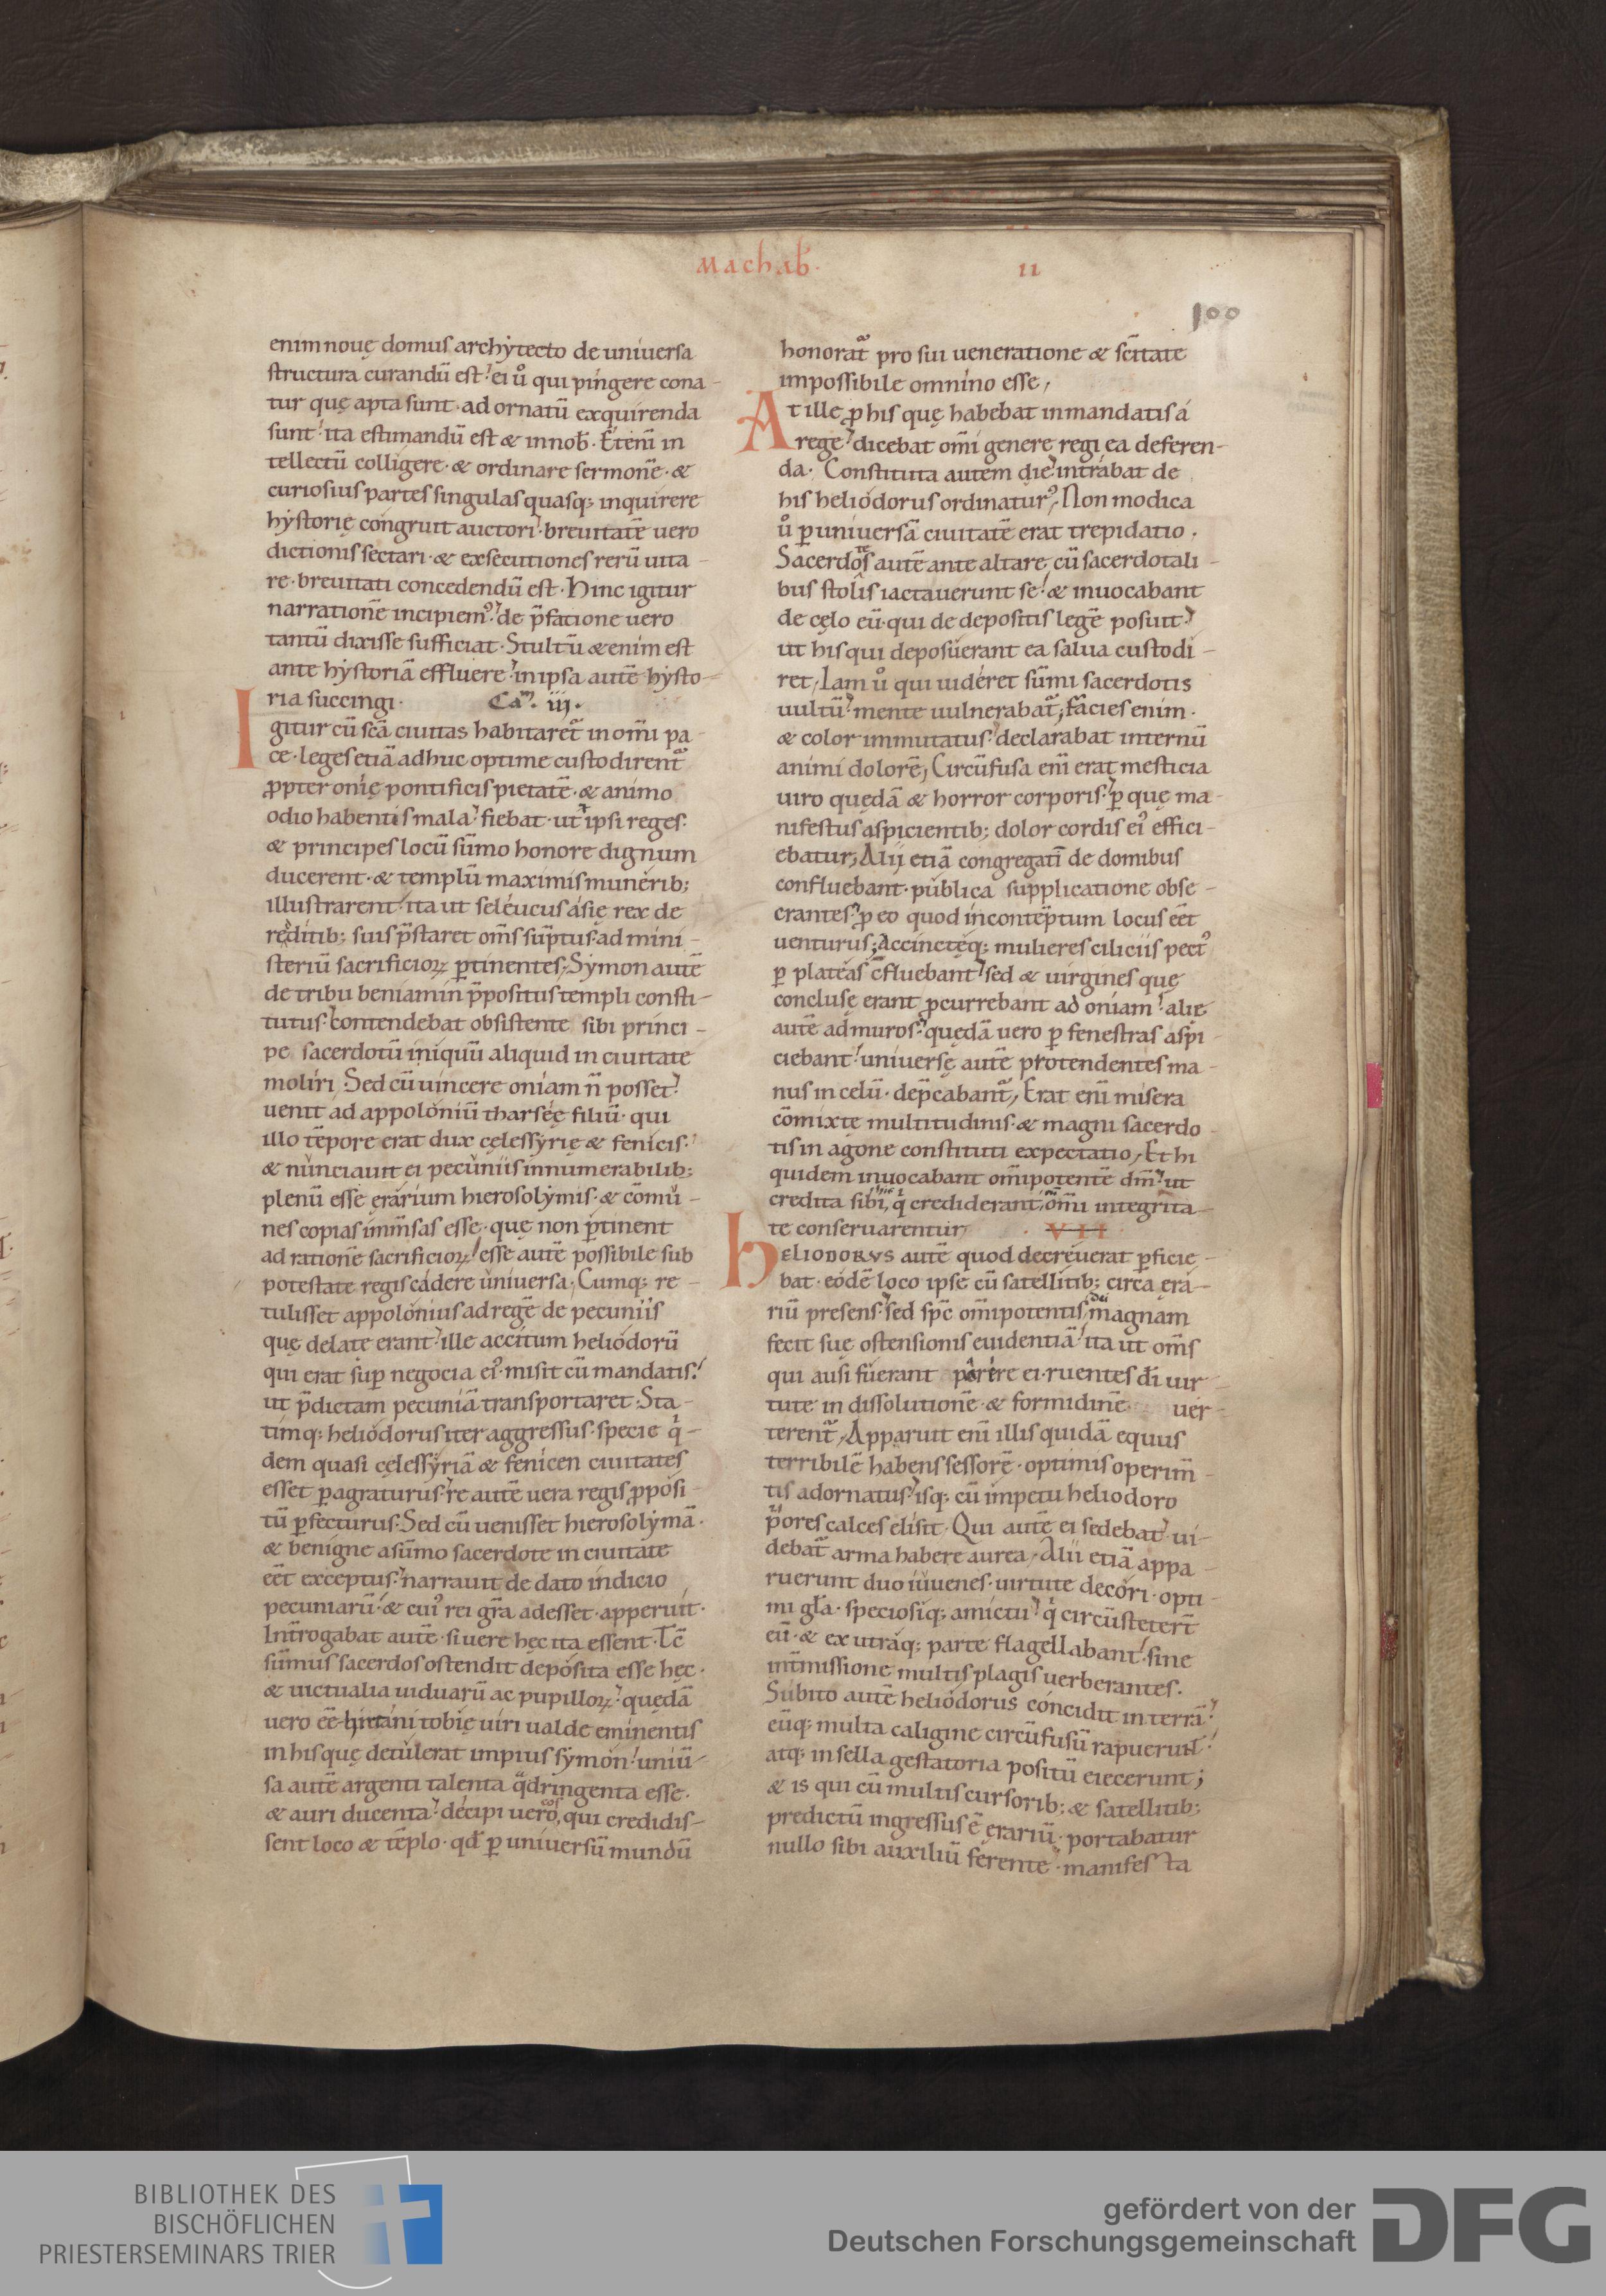 Machab̄. II
100
enim nouę domus archytecto de uniuersa
structura curandū est. ei ů qui pingere cona-
tur quę apta sunt. ad ornatū exquirenda
sunt. ita estimandū est & in nob̄. Etenī in
tellectū colligere. & ordinare sermonē. &
curiosius partes singulas quasq; inquirere
hystorię congruit auctori. breuitatē uero
dictionis sectari. & exsecutiones rerū uita-
re. breuitati concedendū est. Hinc igitur
narrationē incipiemꝰ. de p̄fatione uero
tantū dixisse sufficiat. Stultū &enim est
ante hystoriā effluere. in ipsa autē hysto-
ria succingi. Ca᷒. iij.
Igitur cū scā ciuitas habitaret᷒ in om̄i pa-
ce. leges etiā adhuc optime custodirent᷒
ꝓpter onię pontificis pietatē. & animo
odio habentis mala. fiebat. ut ipsi reges.
& principes locū sūmo honore dignum
ducerent. & templū maximis munerib;
illustrarent. ita ut seleucus asię rex de
reditib; suis p̄staret om̄s sūptus. ad mini-
steriū sacrificioꝝ ꝑtinentes; Symon autē
de tribu beniamin p̄positus templi consti-
tutus. contendebat obsistente sibi princi-
pe sacerdotū iniquū aliquid in ciuitate
moliri; Sed cū uincere oniam n̄ posset.
uenit ad appoloniū tharsęę filiū. qui
illo tēpore erat dux cęlessyrię & fenicis.
& nunciauit ei pecuniis innumerabilib;
plenū esse ęrarium hierosolymis. & cōmu-
nes copias im̄sas esse. quę non ꝑtinent
ad rationē sacrificioꝝ. esse autē possibile sub
potestate regis cadere uniuersa; Cumq; re-
tulisset appolonius ad regē de pecuniis
quę delate erant. ille accitum heliodorū
qui erat suꝑ negocia eiꝰ. misit cū mandatis.
ut p̄dictam pecuniā transportaret. Sta-
timq; heliodorus iter aggressus. specie qͥ-
dem quasi cęlessyriā & fenicen ciuitates
esset ꝑagraturus. re autē uera regis ꝓposi-
tū ꝑfecturus. Sed cū uenisset hierosolymā.
& benigne a sūmo sacerdote in ciuitate
eēt exceptus. narrauit de dato indicio
pecuniarū. & cuiꝰ rei gr̄a adesset. apperuit.
Int̄rogabat autē. si uere hęc ita essent. Tc̄
sūmus sacerdos ostendit deposita esse hęc.
& uictualia uiduarū ac pupilloꝝ. quędā
uero eē hircani tobię uiri ualde eminentis
in his quę detulerat impius symon. uniū-
sa autē argenti talenta qᷓdringenta esse.
& auri ducenta. decipi uero eos, qui credidis-
sent loco & tēplo. qđ ꝑ uniuersū mundū
honorat᷒ pro sui ueneratione & sc̄itate
impossibile omnino esse;
At ille ꝓ his quę habebat in mandatis á
rege. dicebat om̄i genere regi ea deferen-
da. Constituta autem die. intrabat de
his heliodorus ordinaturꝰ; Non modica
ů ꝑ uniuersā ciuitatē erat trepidatio.
Sacerdotes autē ante altare cū sacerdotali-
bus stolis iactauerunt se. & inuocabant
de cęlo eū. qui de depositis legē posuit.
ut his qui deposuerant ea salua custodi-
ret; Iam ů qui uideret sūmi sacerdotis
uultū. mente uulnerabat᷒; facies enim.
& color immutatus. declarabat internū
animi dolorē; Circūfusa enī erat mesticia
uiro quędā & horror corporis. ꝑ quę ma-
nifestus aspicientib; dolor cordis eiꝰ effici-
ebatur; Alij etiā congregatī de domibus
confluebant. publica supplicatione obse-
crantes. ꝓ eo quod in contēptum locus eēt
uenturus; Accinctęq; mulieres ciliciis pectꝰ
ꝑ plateas c̄fluebant. sed & uirgines quę
conclusę erant ꝓcurrebant ad oniam. alię
autē ad muros. quędā uero ꝑ fenestras aspi-
ciebant. uniuersę autē protendentes ma-
nus in celū. dep̄cabant᷒; Erat enī misera
cōmixtę multitudinis. & magni sacerdo-
tis in agone constituti expectatio; Et hi
quidem inuocabant om̄ipotentē dm̄. ut
credita sibi, qͥ crediderant, om̄i integrita-
te conseruarentur; VII
HELIODORVS autē quod decreuerat ꝑficie-
bat. eodē loco ipse cū satellitib; circa ęra-
riū presens. sed spc̄ om̄ipotentis dī magnam
fecit suę ostensionis euidentiā. ita ut om̄s
qui ausi fuerant parere ei. ruentes dī uir-
tute in dissolutionē & formidinē uer-
terent᷒; Apparuit enī illis quidā equus
terribilē habens sessorē. optimis operim̄-
tis adornatus. isq; cū impetu heliodoro
p̄ores calces elisit. Qui autē ei sedebat. ui-
debat᷒ arma habere aurea; Alii etiā appa-
ruerunt duo iuuenes. uirtute decori. opti-
mi gl̄a. speciosiq; amictu. qͥ circūstetert̄
eū. & ex utraq; parte flagellabant. sine
int̄missione multis plagis uerberantes.
Subito autē heliodorus concidit in terrā.
eūq; multa caligine circūfusū rapuerunt.
atq; in sella gestatoria positū eiecerunt;
& is qui cū multis cursorib; & satellitib;
predictū ingressus ē ęrariū. portabatur
nullo sibi auxiliū ferente. manifesta
BIBLIOTHEK DES
BISCHÖFLICHEN
PRIESTERSEMINARS TRIER
gefördert von der
Deutschen Forschungsgemeinschaft
DFG